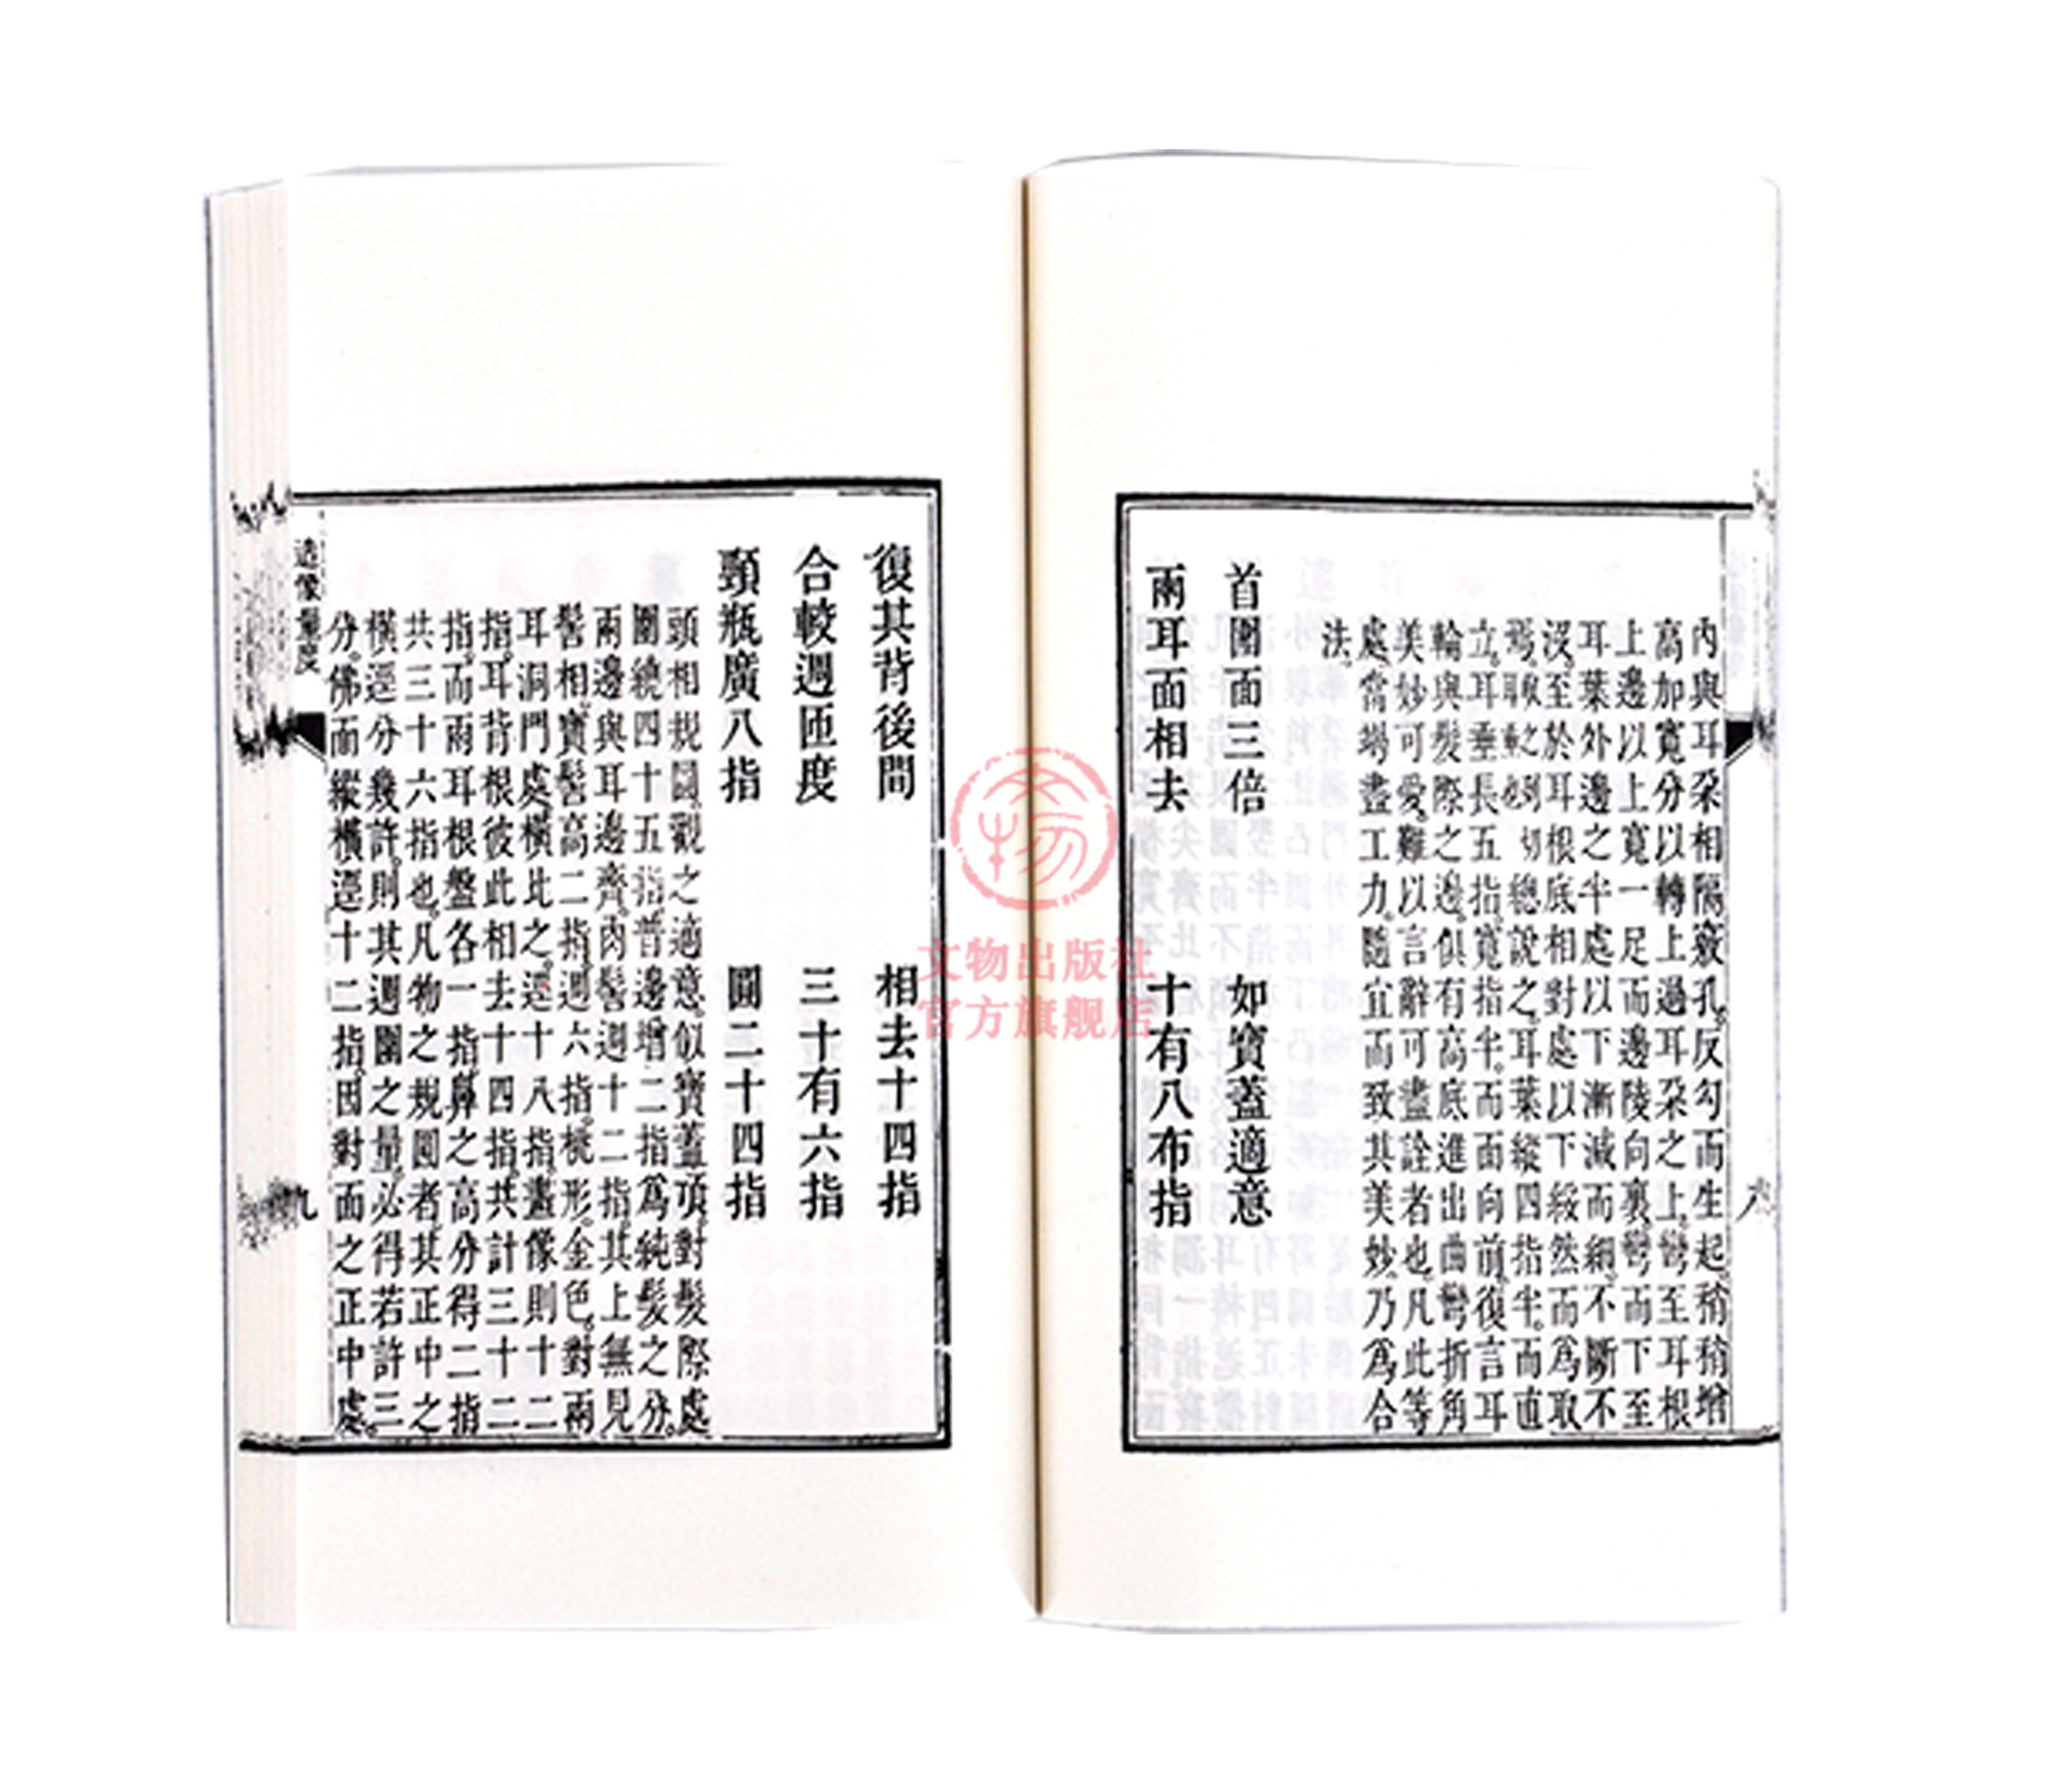 內與耳朶相隔竅孔。反勾而生起。稍稍增
高加寬分以轉上過耳朶之上。彎至耳根
上邊以上寬一足而邊陵向裏。彎而下至
耳葉外邊之半處以下漸減而細。不斷不
沒。至於耳根底相對處以下綏然而爲取
總說之。耳葉縱四指半。而直
立。耳垂長五指。寬指半。而面向前。復言耳
輪與髮際之邊。俱有高底進出曲彎折角
美妙可愛。難以言辭可盡詮者也。凡此等
處。當竭盡工力。隨宜而致其美妙。乃爲合
法。
首圍面三倍 如寶蓋適意
兩耳面相去 十有八布指
復其背後間 相去十四指
合較週匝度 三十有六指
頸瓶廣八指 圓二十四指
頭相規圓。觀之適意。似寶蓋頂。對髮際處
圍繞四十五指。普邊增二指爲純髮之分。
兩邊與耳邊齊。肉髻週十二指。其上無見
髻相。寶髻高二指。週六指。桃形。金色。對兩
耳洞門處。橫比之。逕十八指。畫像則十二
指。耳背根彼此相去十四指。共計三十二
指。而兩耳根盤各一指。鼻之高分得二指
共三十六指也。凡物之規圓者。其正中之
橫逕分幾許。則其週圍之量。必得若許三
分。佛面縱橫逕十二指。因對面之正中處。
造像量度
九
文物
文物出版社
官方旗舰店